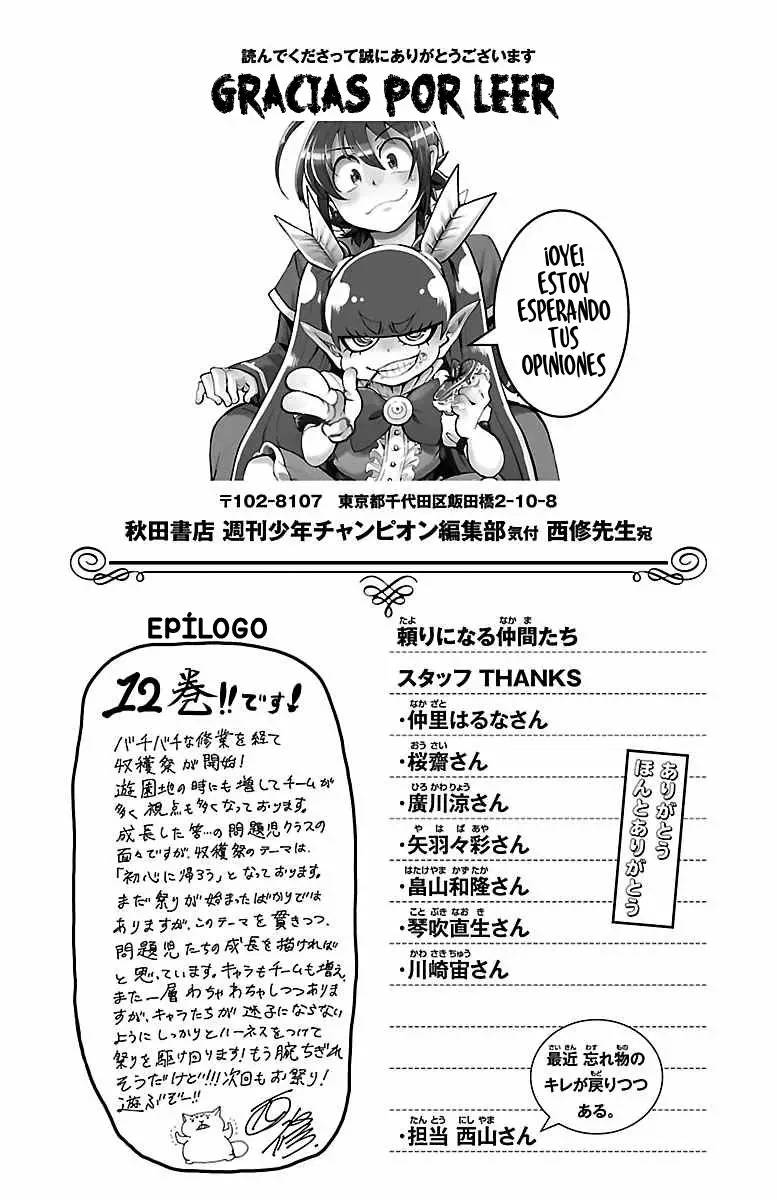 読んでくださって誠にありがとうございます
GRACIAS POR LEER
¡OYE!
ESTOY
ESPERANDO
TUS
OPINIONES
〒102-8107 東京都千代田区飯田橋2-10-8
秋田書店 週刊少年チャンピオン編集部気付 西修先生宛
EPÍLOGO
12巻!!です!
バチバチな修業を経て
収穫祭が開始!
遊園地の時にも増してチームが
多く視点も多くなっております。
成長した筈…の問題児クラスの
面々ですが、収穫祭のテーマは、
「初心に帰ろう」となっております。
まだ祭りが始まったばかりでは
ありますが、このテーマを貫きつつ、
問題児たちの成長を描ければ
と思っています。キャラもチームも増え、
また一層わちゃわちゃしつつありま
すが、キャラたちが迷子にならない
ようにしっかりとハーネスをつけて
祭りを駆け回ります!もう腕ちぎれ
そうだけど!!!次回もお祭り!
遊ぶぞー!!
西修
頼りになる仲間たち
スタッフ THANKS
・仲里はるなさん
・桜齋さん
・廣川涼さん
・矢羽々彩さん
・畠山和隆さん
・琴吹直生さん
・川崎宙さん
ありがとう
ほんとありがとう
最近 忘れ物の
キレが戻りつつ
ある。
・担当 西山さん